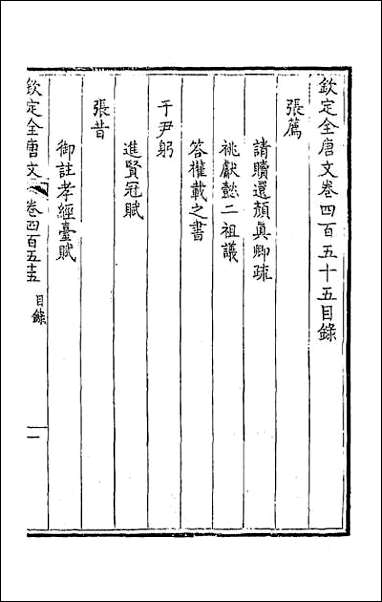 欽定全唐文卷四百五十五目錄
張薦
請贖還顏真卿疏
祧獻懿二祖議
答權載之書
于尹躬
進賢冠賦
張昔
御註孝經臺賦
欽定全唐文
卷四百五十五
目錄
一